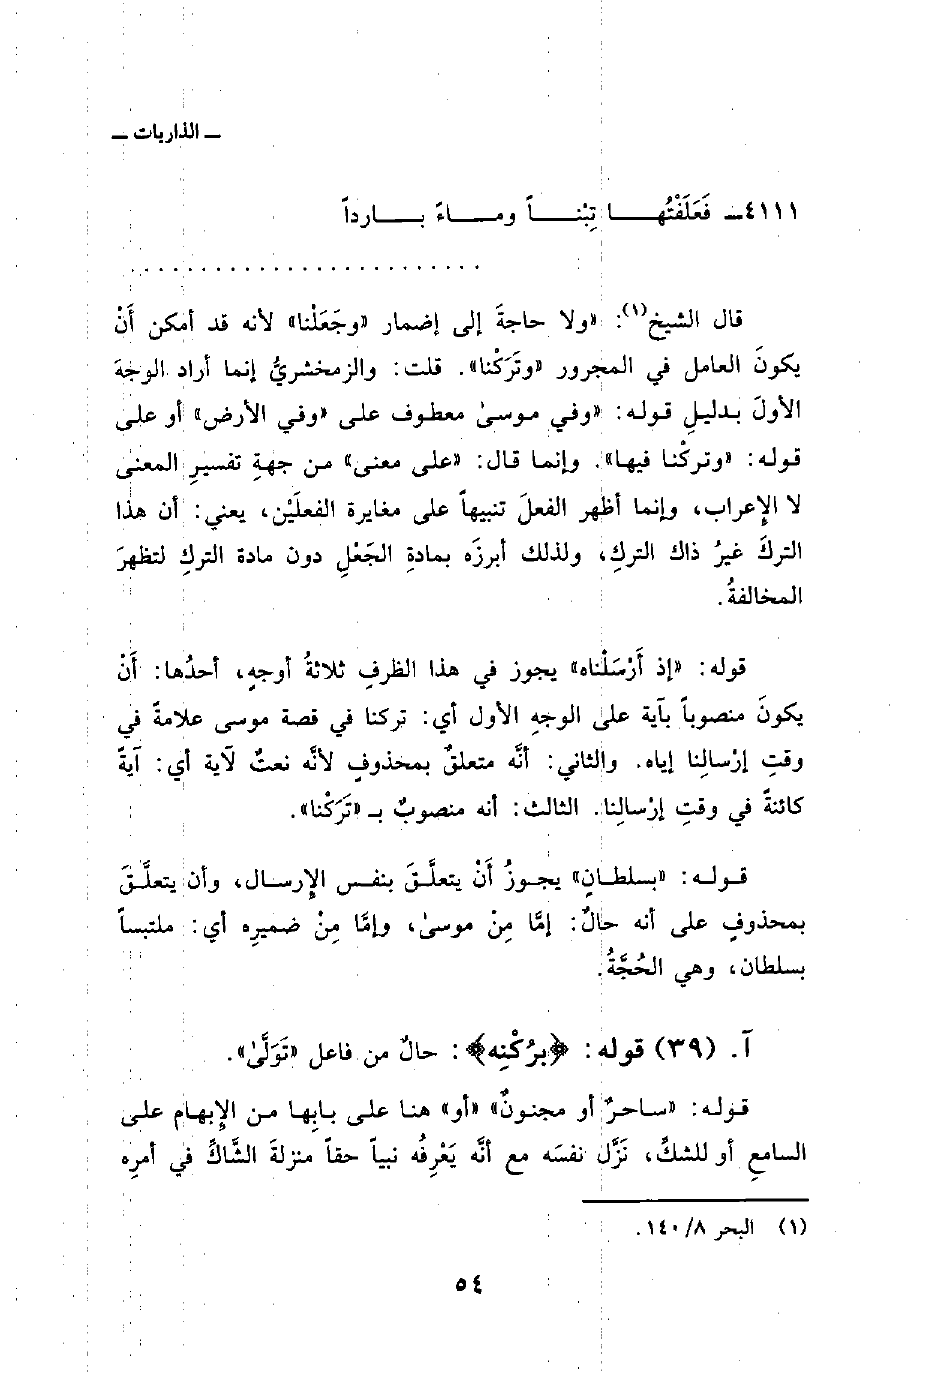 ـ الذاريات ـ
٤١١١ـ فَعَلَفْتُهـــــا تِبْنــــاً ومـــــاءً بـــــارداً
. . . . . . . . . . . . . . . . . . . . . . . . .
قال الشيخ(١): «ولا حاجةَ إلى إضمار «وجَعَلْنا» لأنه قد أمكن أَنْ
يكونَ العامل في المجرور «وتَرَكْنا». قلت: والزمخشريُّ إنما أراد الوجهَ
الأولَ بدليلِ قوله: «وفي موسىٰ معطوف على «وفي الأرض» أو على
قوله: «وتركْنا فيها». وإنما قال: «على معنى» من جهةِ تفسيرِ المعنى
لا الإِعراب، وإنما أظهر الفعلَ تنبيهاً على مغايرة الفعلَيْن، يعني: أن هذا
التركَ غيرُ ذاك التركِ، ولذلك أبرزَه بمادةِ الجَعْلِ دون مادة التركِ لتظهرَ
المخالفةُ.
قوله: «إذ أَرْسَلْناه» يجوز في هذا الظرفِ ثلاثةُ أوجهٍ، أحدُها: أَنْ
يكونَ منصوباً بآية على الوجهِ الأول أي: تركنا في قصة موسى علامةً في
وقتِ إرْسالِنا إياه. والثاني: أنَّه متعلقٌ بمحذوفٍ لأنَّه نعتٌ لآية أي: آيةً
كائنةً في وقتِ إرْسالِنا. الثالث: أنه منصوبٌ بـ «تَرَكْنا».
قوله: «بسلطانٍ» يجوزُ أَنْ يتعلَّقَ بنفس الإِرسال، وأن يتعلَّقَ
بمحذوفٍ على أنه حالٌ: إمَّا مِنْ موسىٰ، وإمَّا مِنْ ضميرِه أي: ملتبساً
بسلطان، وهي الحُجَّةُ.
آ. (٣٩) قوله: ﴿برُكْنِه﴾: حالٌ من فاعل «تَوَلَّىٰ».
قوله: «ساحرٌ أو مجنونٌ» «أو» هنا على بابِها من الإِبهام على
السامعِ أو للشكِّ، نَزَّل نفسَه مع أنَّه يَعْرِفُه نبياً حقاً منزلةَ الشَّاكِّ في أمرِه
(١) البحر ١٤٠/٨.
٥٤